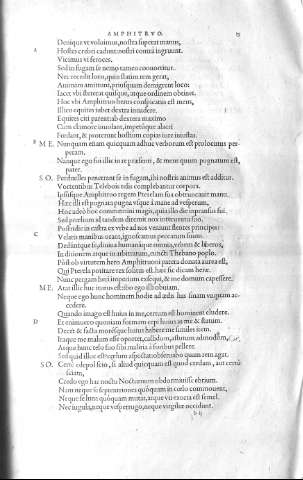 AMPHITRVO.
Denique vt voluimus, nostra superat manus,
A Hostes crebri cadunt: nostri contra ingruunt.
Vicimus vi feroces.
Sed in fugam se nemo tamen conuortitur.
Nec recedit loco, quin statim rem gerat.
Animam amittunt, priusquam demigrent loco:
Iacet vbi steterat quisque, atque ordinem obtinet.
Hoc vbi Amphitruo herus conspicatus est meus,
Illico equites iubet dextra inducere.
Equites citi parent: ab dextera maximo
Cum clamore inuolant, impetu
Foedant, & proterunt hostium copias iure iniustas.
B ME. Nunquam etiam quicquam adhuc verborum est prolocutus per-
peram.
Namque ego fui illic in re praesenti, & meus quum pugnatum est,
pater.
SO. Perduelles penetrant se in fugam, ibi nostris animus est additus.
Vortentibus Telebois telis complebantur corpora.
Ipsusque Amphitruo regem Pterelam sua obtruncauit manu.
Haec illi est pugnata pugna vsque à mane ad vesperum,
Hoc adeò hoc commemini magis, quia illo die inpransus fui.
Sed proelium id tandem diremit nox interuentu suo.
Postridie in castra ex vrbe ad nos veniunt flentes principes:
C Velatis manibus orant, ignoscamus peccatum suum.
Deduntque se, diuina humanaque omnia, vrbem & liberos,
In ditionem atque in arbitratum, cuncti Thebano poplo.
Pòst ob virtutem hero Amphitruoni patera donata aurea est,
Qui Pterela potitare rex solitus est. haec sic dicam herae.
Nunc pergam heri imperium exequi, & me domum capessere.
ME. Atat illic huc iturus est: ibo ego illi obuiam.
Neque ego hunc hominem hodie ad aedis has sinam vnquam ac-
cedere.
Quando imago est huius in me, certum est hominem eludere.
D Et enimuero quoniam formam cepi huius in me & statum.
Decet & facta moresque huius habere me similes item.
Itaque me malum esse oportet, callidum, astutum admodum,
Atque hunc telo suo sibi malitia à foribus pellere.
Sed quid illuc est? coelum aspectat. obseruabo quam rem agat.
SO. Certò edepol scio, si aliud quicquam est quod credam, aut certò
sciam,
Credo ego hac noctu Nocturnum obdormiuisse ebrium.
Nam neque se septentriones quoquam in coelo commouent,
Neque se luna quoquam mutat, atque vti exorta est semel.
Nec iugula, neque vesperugo, neque virgiliae occidunt.